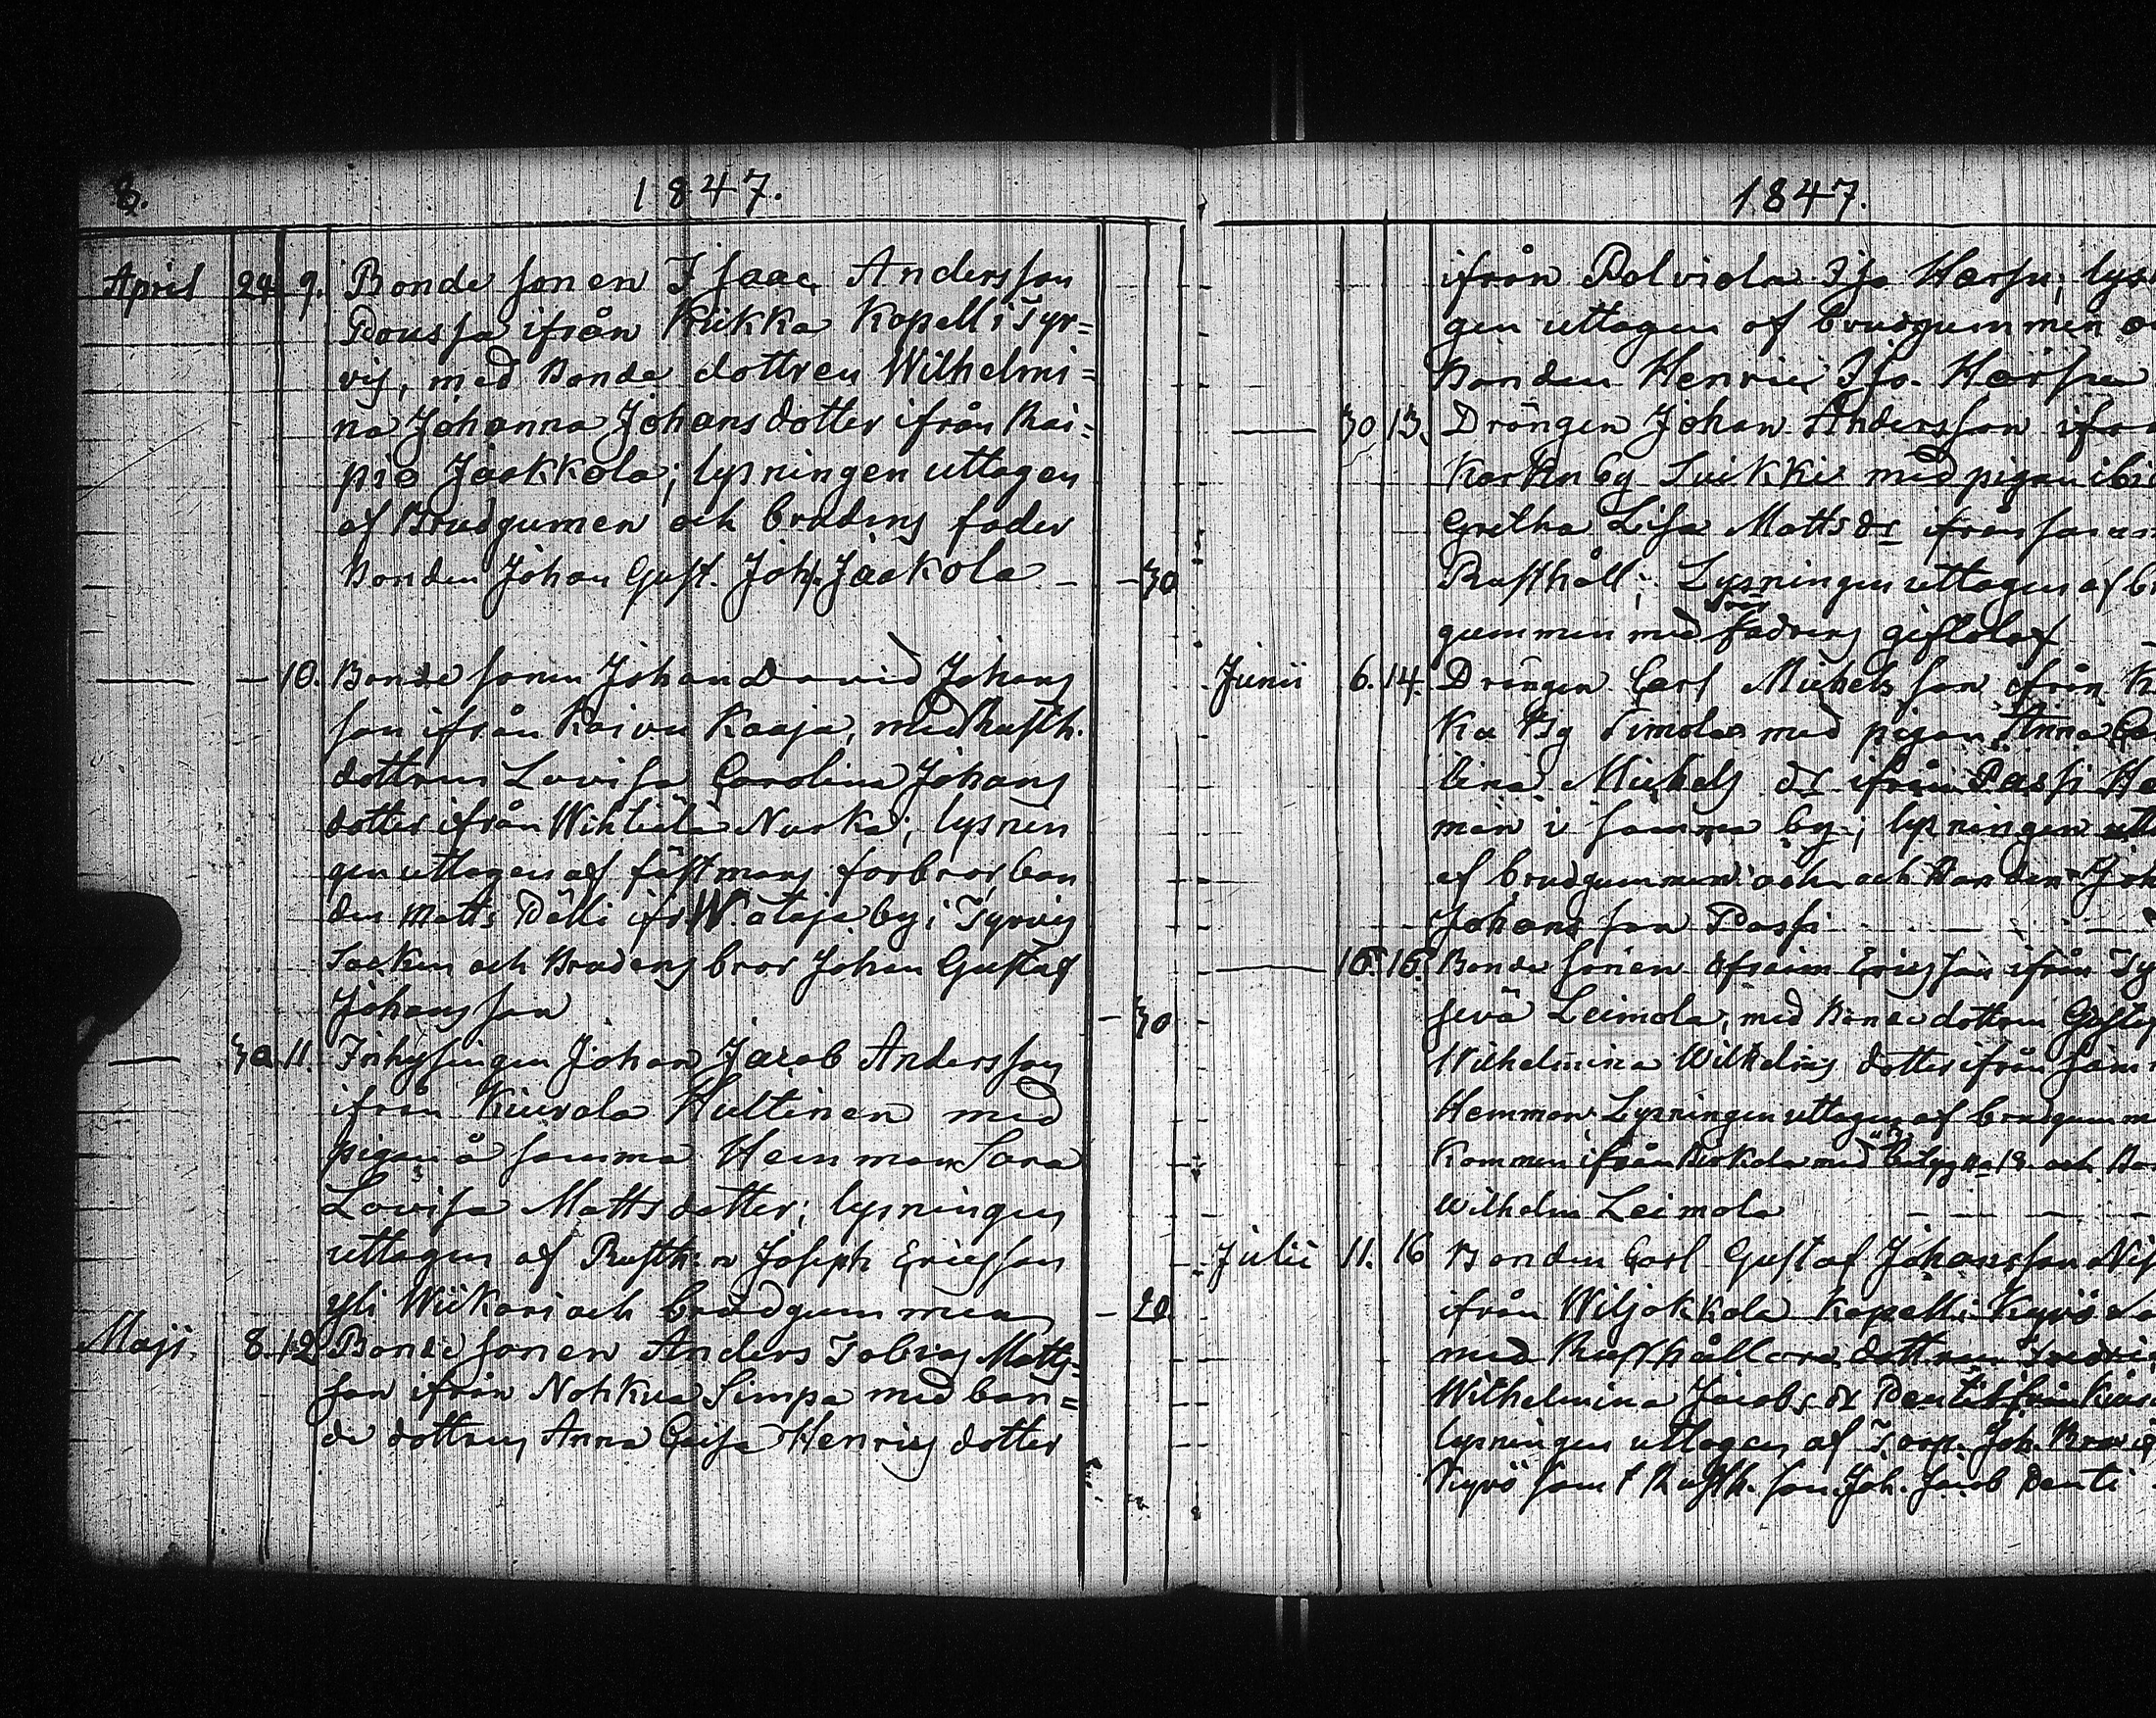 8.
1847.
April 24. 9. Bonde sonen Isaac Andersson
Roussa ifrån Kiikka Kapell i Tyr=
vis, med Bonde dottren Wilhelmi=
na Johanna Johansdotter ifrån Rai=
pio Jaakkola; lysningen uttagen
af Brudgumen och brudens fader
Bonden Johan Gust. Joh. Jaakola - - 30
— — 10. Bonde sonen Johan David Johans
son ifrån Raivu Kaaja, med Rusth.
dottren Lovisa Carolina Johans
dotter ifrån Wihteilä Nuska; lysnin
gen uttagen af fästmans farbror bon
den Matts Pälli ifr. W. ataja by i Tyrvis
Socken och Brudens bror Johan Gustaf
Johansson - 30
— 30. 11. Inhysingen Johan Jacob Andersson
ifrån Kiurala Hultinen med
pigan å samma Hemman Sara
Lovisa Mattsdotter; lysningen
uttagen af Rusth:n Joseph Ericsson
yli Wiikari och brudgummen - 20.
Maji. 8. 12. Bonde sonen Anders Tobias Matts=
son ifrån Nohkua Simpa med bon=
de dottren Anna Caisa Henrics dotter
1847.
ifrån Polviola Iso Harsu; lys
gen uttagen af brudgummen o
Bonden Henric Iso. Harsu
— 30 13. Drängen Johan Andersson ifrå
Karkn by Suikki med pigan ibid
Gretha Lisa Matts dr ifrån samm
Rusthåll; Lysningen uttagen af b
gummen med sin fadrens giftolof
Junii 6. 14. Drängen Carl Michels son ifrån K
ka by Simola med pigan Anna Ca
lina Michels dr ifrån Passi He
man i samma by; lysningen utt
af brudgummen och Bonden Joh
Johans son Passi
— 15. Bonde sonen Efraim Ericsson ifrån Ty
sevä Leimola, med Bonde dottren Gustaf
Wilhelmina Wilhelms dotter ifrån sam
Hemman. Lysningen uttagen af brudgumm
kommen ifrån med betyg No 18. och Bo
Wilhelm Leimola
Julii 11. 16 Bonden Carl Gustaf Johansson Ni
ifrån Wiljakkala Kapell i Kyrö
med Rusthållare dottren Fredri
Wilhelmina Jacobs dr Pentti ifrån Kiu
lysningen uttagen af Torp. Joh.
Kyrö samt Rusth. son Joh. Jacob Pentti